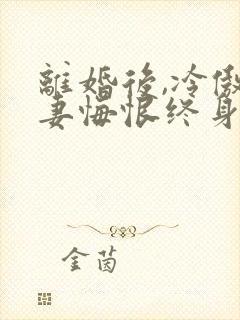 離婚後,冷傲
妻悔恨终身
金茵